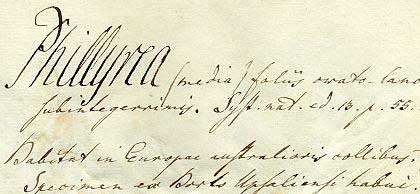 Phillyrea (media) foliis ovato-lanc
subintegerrimis. Syst. nat. ed. 13. p. 55.
Habitat in Europae australioris collibus.
Specimen ex Horto Upsaliensi habui